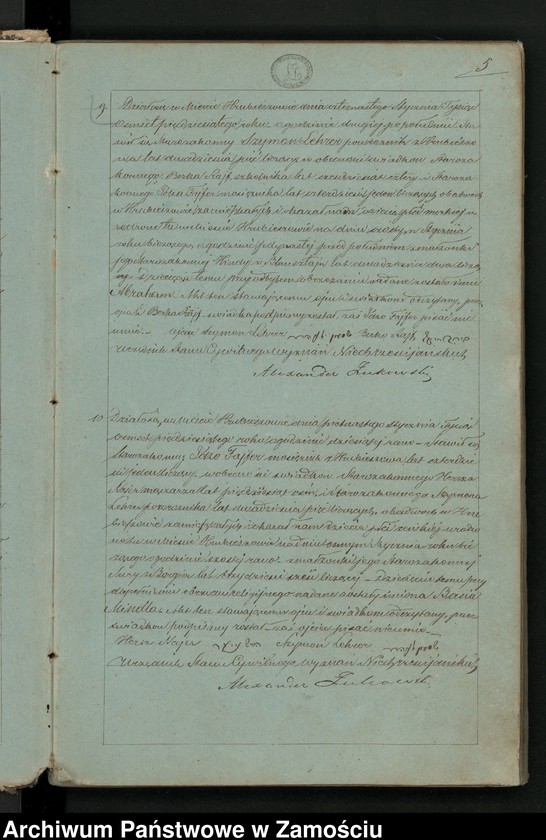 5
9 Działo się w Mieście Hrubieszowie dnia czternastego Stycznia Tysiąc
Ośmset pięćdziesiątego roku o godzinie drugiej po południu Sta
wił się Starozakonny Szymon Lehrer z Hrubieszo
wa lat dwadzieścia pięć liczący w obecności świadków Staroza
konnego Berka Zajf szkolnika lat cztery i Staroza
konnego Icko Fajfer mosiężnika lat czterdzieści jeden liczących obudwóch
w Hrubieszowie zamieszkałych i okazał nam dziecię płci męskiej u
rodzone tu w Mieście Hrubieszowie na dniu Stycznia
roku bieżącego, o godzinie jedynastej przed południem z małżonki
jego Starozakonnej Hindy z lat dwadzieścia dwa liczą
cej. Dziecięciu temu przy odbytem obrzezaniu nadane zostało imie
Abraham. Akt ten stawającemu ojcu i świadkom odczytany, prze
z ojca i Berka Zajf świadka podpisany został zaś Icko Fajfer pisać nie
umie – ojciec Szymon Lehrer Berko Zajf
Urzędnik Stanu Cywilnego wyznań Niechrześcijańskich
Alexander Żukowski
10 Działo się w Mieście Hrubieszowie dnia piętnastego Stycznia Tysiąc
ośmset pięćdziesiątego roku o godzinie dziesiątej rano – Stawił się
Starozakonny Icko Fajfer mosiężnik z Hrubieszowa lat czterdzie
ści jeden liczący, w obecności świadków Starozakonnego Herszka
Najer lat pięćdziesiąt ośm, i Starozakonnego Szymona
Lehrer lat dwadzieścia pięć liczących, obudwóch w Hru
bieszowie zamieszkałych i okazał nam dziecię płci żeńskiej urodzo
ne tu w Mieście Hrubieszowie na dniu ósmym Stycznia roku bie
żącego o godzinie szóstej rano z małżonki jego Starozakonnej
Sury z lat trzydzieści sześć liczącej – Dziecięciu temu przy
dopełnieniu obrzędu religijnego nadane zostały imiona Basia
Mindla. Akt ten stawającemu ojcu i świadkom odczytany, przez
świadków podpisany został – zaś ojciec pisać nie umie –
Hersz Najer Szymon Lehrer
Urzędnik Stanu Cywilnego wyznań Niechrześcijańskich
Alexander Żukowski
Archiwum Państwowe w Zamościu